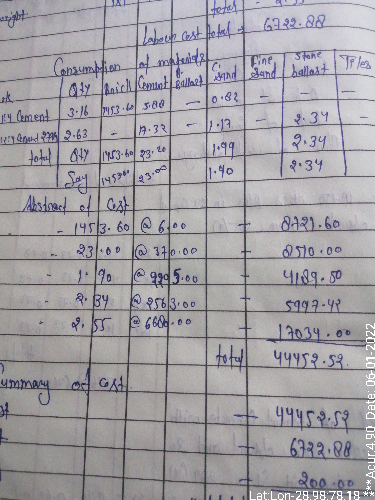 total - 2.55
Labour Cost total = 6722.88
Consumption of material
Qty Brick Cement Ballast C.Sand Fine Sand Stone ballast Tiles
1:4 Cement 3.16 1453.60 5.88 — 0.82 — — —
2.63 — 17.32 — 1.17 2.34
total Qty 1453.60 23.20 1.99 2.34
Say 1453.00 23.00 1.90 2.34
Abstract of Cost
- 1453.60 @ 6.00 — 8721.60
- 23.00 @ 370.00 — 8510.00
- 1.90 @ 2205.00 — 4189.50
- 2.34 @ 2563.00 — 5997.42
- 2.55 @ 6680.00 — 17034.00
total 44452.52
ummary of cost.
st — 44452.52
— 6722.88
— 200.00
Lat,Lon-28.98:78.18***Acur:4.90 Date: 06-01-2022